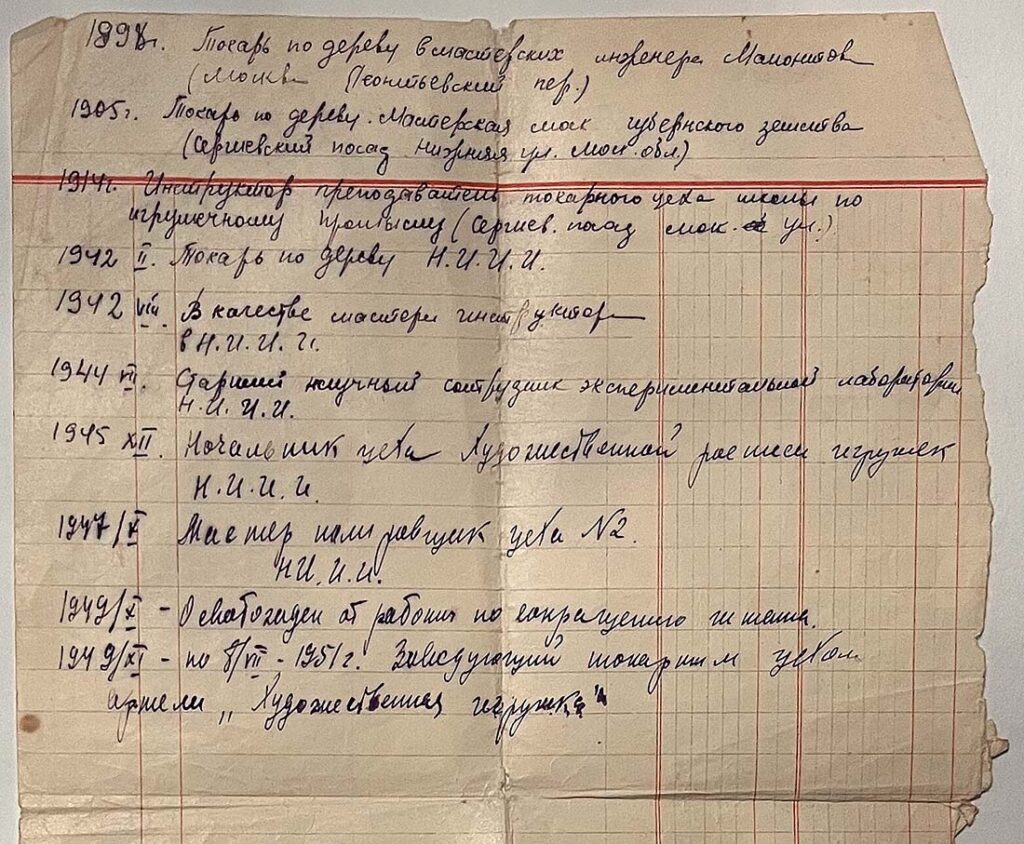 1898г. Токарь по дереву в мастерских инженера Мамонтова
(Москва Леонтьевский пер.)
1905г. Токарь по дереву. Мастерская мос губернского земства
(Сергиевский посад Нижняя ул. Мос. обл.)
1914г. Инструктор преподаватель токарного цеха школы по
игрушечному промыслу (Сергиев. посад мос. ул.)
1942 II. Токарь по дереву Н.И.И.И.
1942 VIII. В качестве мастера инструктора
в Н.И.И.И.
1944 VII. Старший научный сотрудник экспериментальной лаборатории
Н.И.И.И.
1945 XII. Начальник цеха Художественной росписи игрушек
Н.И.И.И.
1947/X Мастер полировщик цеха №2.
НИ.И.И.
1949/X - Освобожден от работы по сокращению штата.
1949/XI - по 8/VII - 1951г. Заведующий токарным цехом
артели „Художественная игрушка"